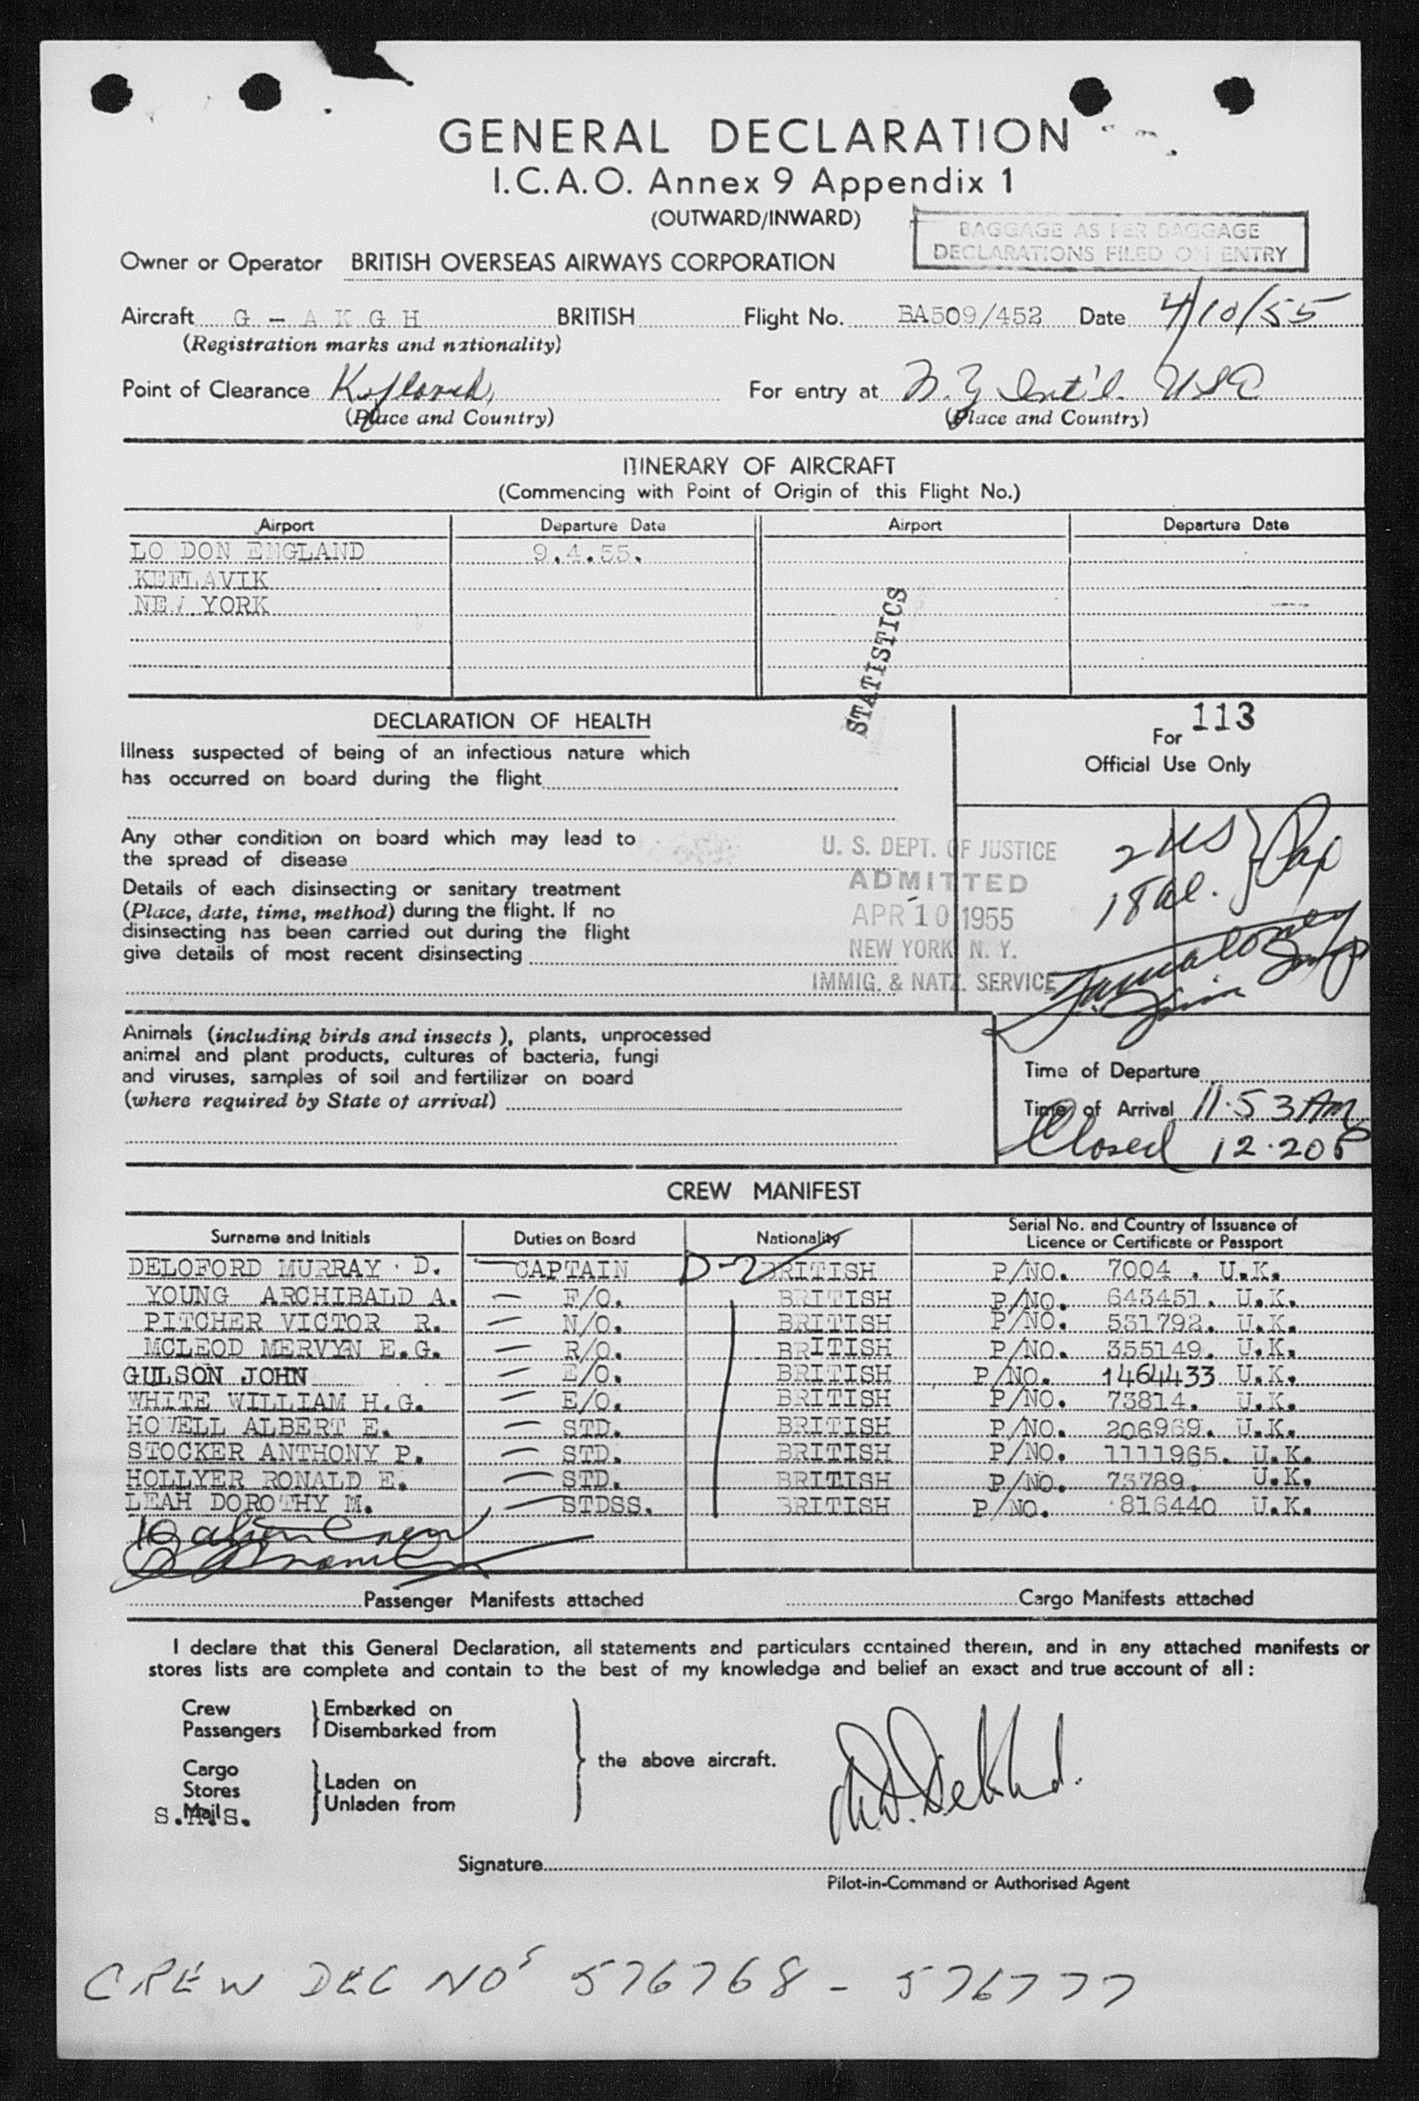 GENERAL DECLARATION
I.C.A.O. Annex 9 Appendix 1
(OUTWARD/INWARD)
BAGGAGE AS PER BAGGAGE
DECLARATIONS FILED ON ENTRY
Owner or Operator BRITISH OVERSEAS AIRWAYS CORPORATION
Aircraft G - A K G H BRITISH Flight No. BA509/452 Date 4/10/55
(Registration marks and nationality)
Point of Clearance For entry at N.Y Int'l. USA
(Place and Country) (Place and Country)
ITINERARY OF AIRCRAFT
(Commencing with Point of Origin of this Flight No.)
Airport Departure Date Airport Departure Date
LO DON ENGLAND 9.4.55.
KEFLAVIK
NEW YORK
STATISTICS
DECLARATION OF HEALTH
Illness suspected of being of an infectious nature which
has occurred on board during the flight
For 113
Official Use Only
Any other condition on board which may lead to
the spread of disease
Details of each disinsecting or sanitary treatment
(Place, date, time, method) during the flight. If no
disinsecting has been carried out during the flight
give details of most recent disinsecting
U. S. DEPT. OF JUSTICE
ADMITTED
APR 10 1955
NEW YORK, N. Y.
IMMIG. & NATZ. SERVICE
2 US
18 al.
Animals (including birds and insects), plants, unprocessed
animal and plant products, cultures of bacteria, fungi
and viruses, samples of soil and fertilizer on board
(where required by State of arrival)
Time of Departure
Time of Arrival 11.53 AM
Closed 12.20 P
CREW MANIFEST
Surname and Initials Duties on Board Nationality Serial No. and Country of Issuance of
Licence or Certificate or Passport
DELOFORD MURRAY . D. CAPTAIN D-2 BRITISH P/NO. 7004 . U.K.
YOUNG ARCHIBALD A. F/O. BRITISH P/NO. 643451. U.K.
PITCHER VICTOR R. N/O. BRITISH P/NO. 531792. U.K.
MCLEOD MERVYN E.G. R/O. BRITISH P/NO. 355149. U.K.
GULSON JOHN E/O. BRITISH P/NO. 1464433 U.K.
WHITE WILLIAM H.G. E/O. BRITISH P/NO. 73814. U.K.
HOWELL ALBERT E. STD. BRITISH P/NO. 206969. U.K.
STOCKER ANTHONY P. STD. BRITISH P/NO. 1111965. U.K.
HOLLYER RONALD E. STD. BRITISH P/NO. 73789. U.K.
LEAH DOROTHY M. STDSS. BRITISH P/NO. 816440 U.K.
10 alien Crew
Passenger Manifests attached Cargo Manifests attached
I declare that this General Declaration, all statements and particulars contained therein, and in any attached manifests or
stores lists are complete and contain to the best of my knowledge and belief an exact and true account of all :
Crew Embarked on
Passengers Disembarked from
the above aircraft.
Cargo
Stores Laden on
Mails Unladen from
Signature
Pilot-in-Command or Authorised Agent
CREW DEC NOS 576768 - 576777